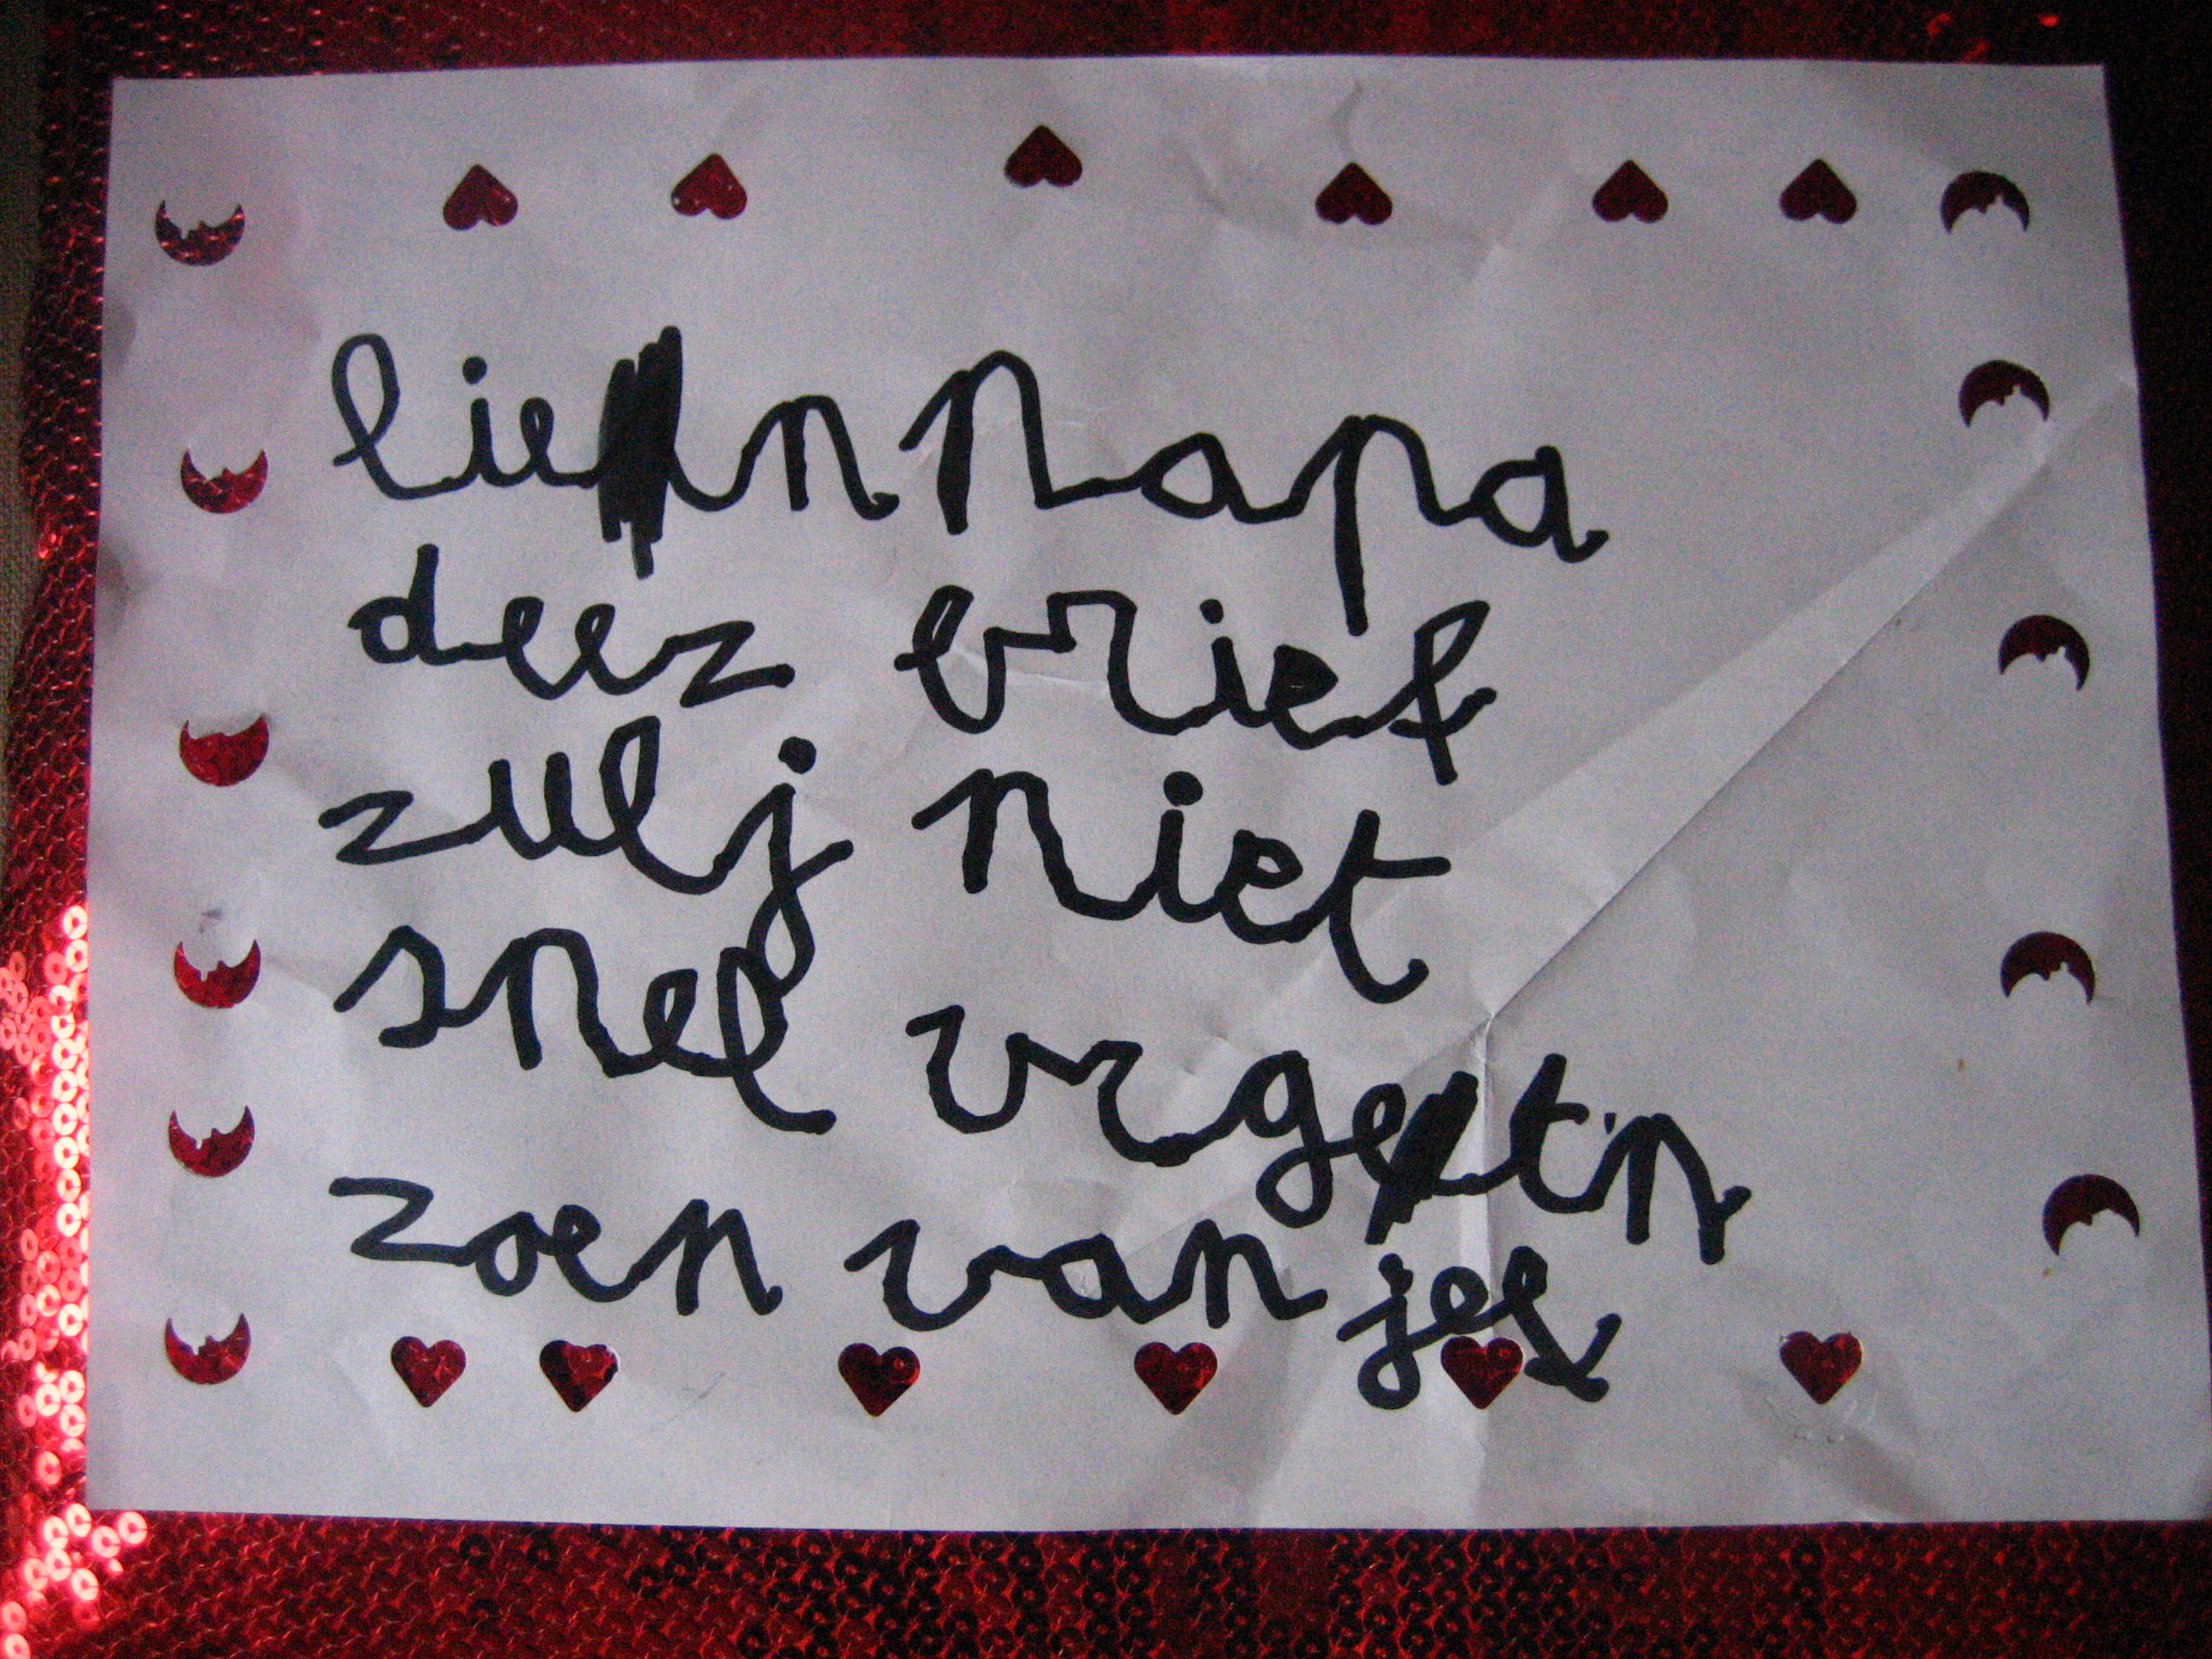 lien papa
deez brief
zulj niet
snel vrgetn
zoen van jef